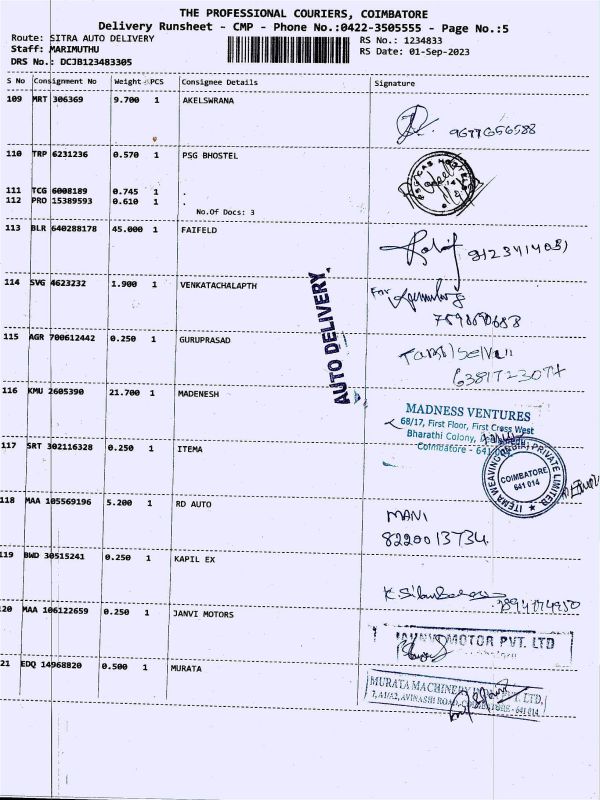 THE PROFESSIONAL COURIERS, COIMBATORE
Delivery Runsheet - CMP - Phone No.:0422-3505555 - Page No.:5
Route: SITRA AUTO DELIVERY
RS No.: 1234833
Staff: MARIMUTHU
RS Date: 01-Sep-2023
DRS No.: DCJB123483305
S No Consignment No Weight PCS Consignee Details Signature
109 MRT 306369 9.700 1 AKELSWRANA
9677656588
110 TRP 6231236 0.570 1 PSG BHOSTEL
111 TCG 6008189 0.745 1 .
112 PRO 15389593 0.610 1 .
No.Of Docs: 3
113 BLR 640288178 45.000 1 FAIFELD
114 SVG 4623232 1.900 1 VENKATACHALAPTH
For
AUTO DELIVERY
115 AGR 700612442 0.250 1 GURUPRASAD
6381723074
116 KMU 2605390 21.700 1 MADENESH
MADNESS VENTURES
68/17, First Floor, First Cross West
Bharathi Colony,
Coimbatore - 641
117 SRT 302116328 0.250 1 ITEMA
ITEMA WEAVING (INDIA) PRIVATE LIMITED
COIMBATORE
641 014
118 MAA 105569196 5.200 1 RD AUTO
MANI
8220013734
119 BWD 30515241 0.250 1 KAPIL EX
20 MAA 106122659 0.250 1 JANVI MOTORS
MOTOR PVT. LTD
21 EDQ 14968820 0.500 1 MURATA
MURATA MACHINERY LTD,
7, A1/A2, AVINASHI ROAD, COIMBATORE - 641 014